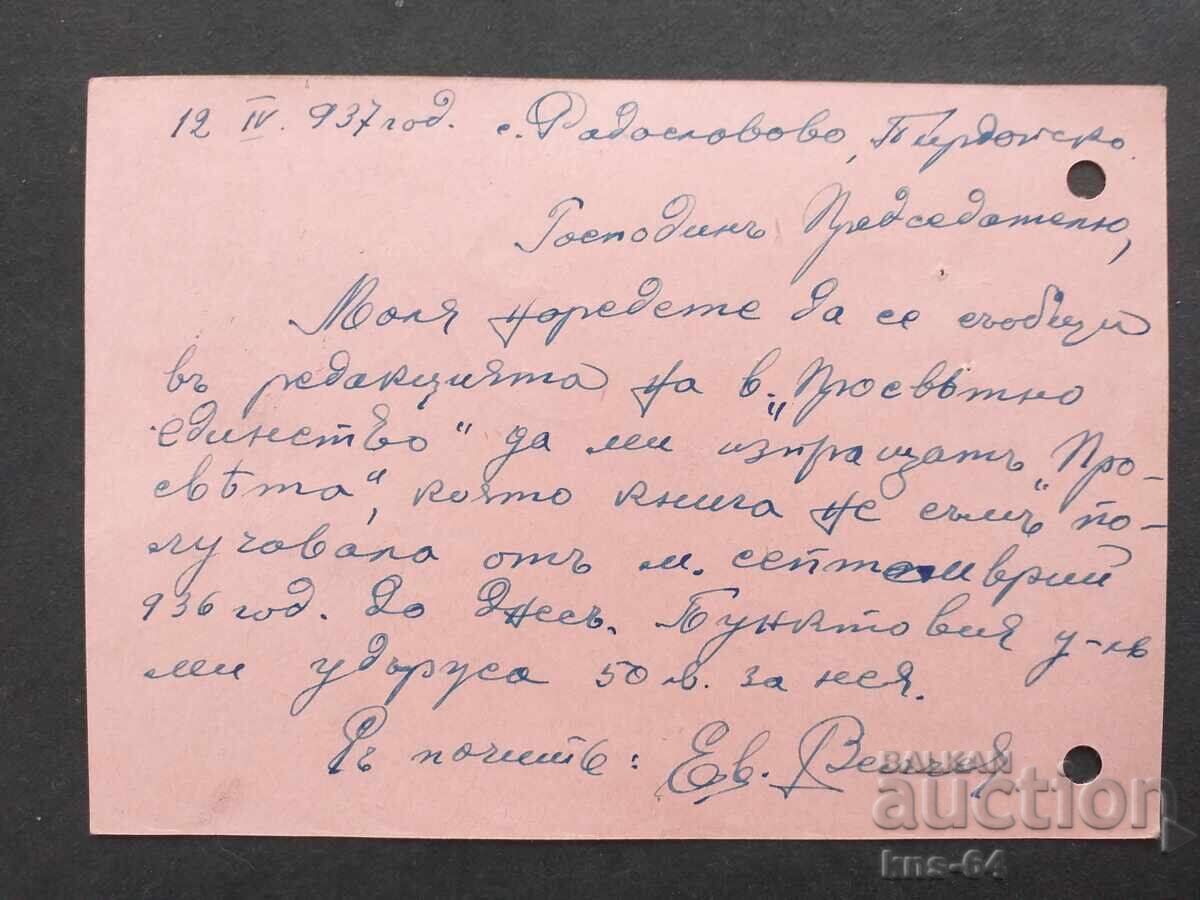 12 IV. 937 год. с. Радославово, Пирдопско
Господинъ Председателю,
Моля наредете да се съобщи
въ редакцията на в. „Просвѣтно
единство“ да ми изпращатъ „Про-
свѣта“, която книга не съмъ по-
лучавала отъ м. септемврий
936 год. до днесъ. Пунктовия у-лъ
ми удържа 50 лв. за нея.
Съ почитъ: Ев.
БАЛКАН
auction
kns-64